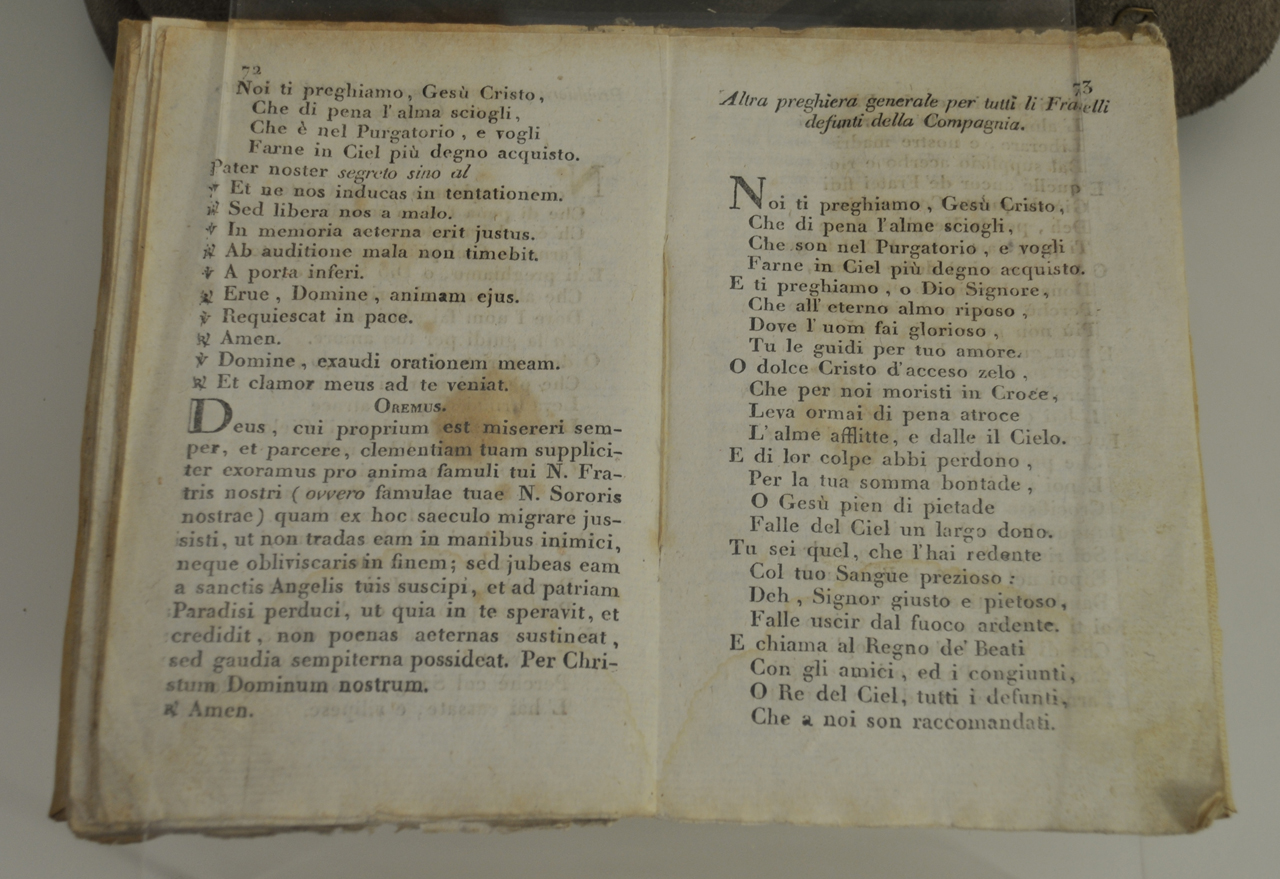 72
Noi ti preghiamo, Gesù Cristo,
Che di pena l'alma sciogli,
Che è nel Purgatorio, e vogli
Farne in Ciel più degno acquisto.
Pater noster segreto sino al
℣ Et ne nos inducas in tentationem.
℟ Sed libera nos a malo.
℣ In memoria aeterna erit justus.
℟ Ab auditione mala non timebit.
℣ A porta inferi.
℟ Erue, Domine, animam ejus.
℣ Requiescat in pace.
℟ Amen.
℣ Domine, exaudi orationem meam.
℟ Et clamor meus ad te veniat.
OREMUS.
Deus, cui proprium est misereri sem-
per, et parcere, clementiam tuam supplici-
ter exoramus pro anima famuli tui N. Fra-
tris nostri (ovvero famulae tuae N. Sororis
nostrae) quam ex hoc saeculo migrare jus-
sisti, ut non tradas eam in manibus inimici,
neque obliviscaris in finem; sed jubeas eam
a sanctis Angelis tuis suscipi, et ad patriam
Paradisi perduci, ut quia in te speravit, et
credidit, non poenas aeternas sustineat,
sed gaudia sempiterna possideat. Per Chri-
stum Dominum nostrum.
℟ Amen.
73
Altra preghiera generale per tutti li Fratelli
defunti della Compagnia.
Noi ti preghiamo, Gesù Cristo,
Che di pena l'alme sciogli,
Che son nel Purgatorio, e vogli
Farne in Ciel più degno acquisto.
E ti preghiamo, o Dio Signore,
Che all'eterno almo riposo,
Dove l'uom fai glorioso,
Tu le guidi per tuo amore.
O dolce Cristo d'acceso zelo,
Che per noi moristi in Croce,
Leva ormai di pena atroce
L'alme afflitte, e dalle il Cielo.
E di lor colpe abbi perdono,
Per la tua somma bontade,
O Gesù pien di pietade
Falle del Ciel un largo dono.
Tu sei quel, che l'hai redente
Col tuo Sangue prezioso:
Deh, Signor giusto e pietoso,
Falle uscir dal fuoco ardente.
E chiama al Regno de' Beati
Con gli amici, ed i congiunti,
O Re del Ciel, tutti i defunti,
Che a noi son raccomandati.